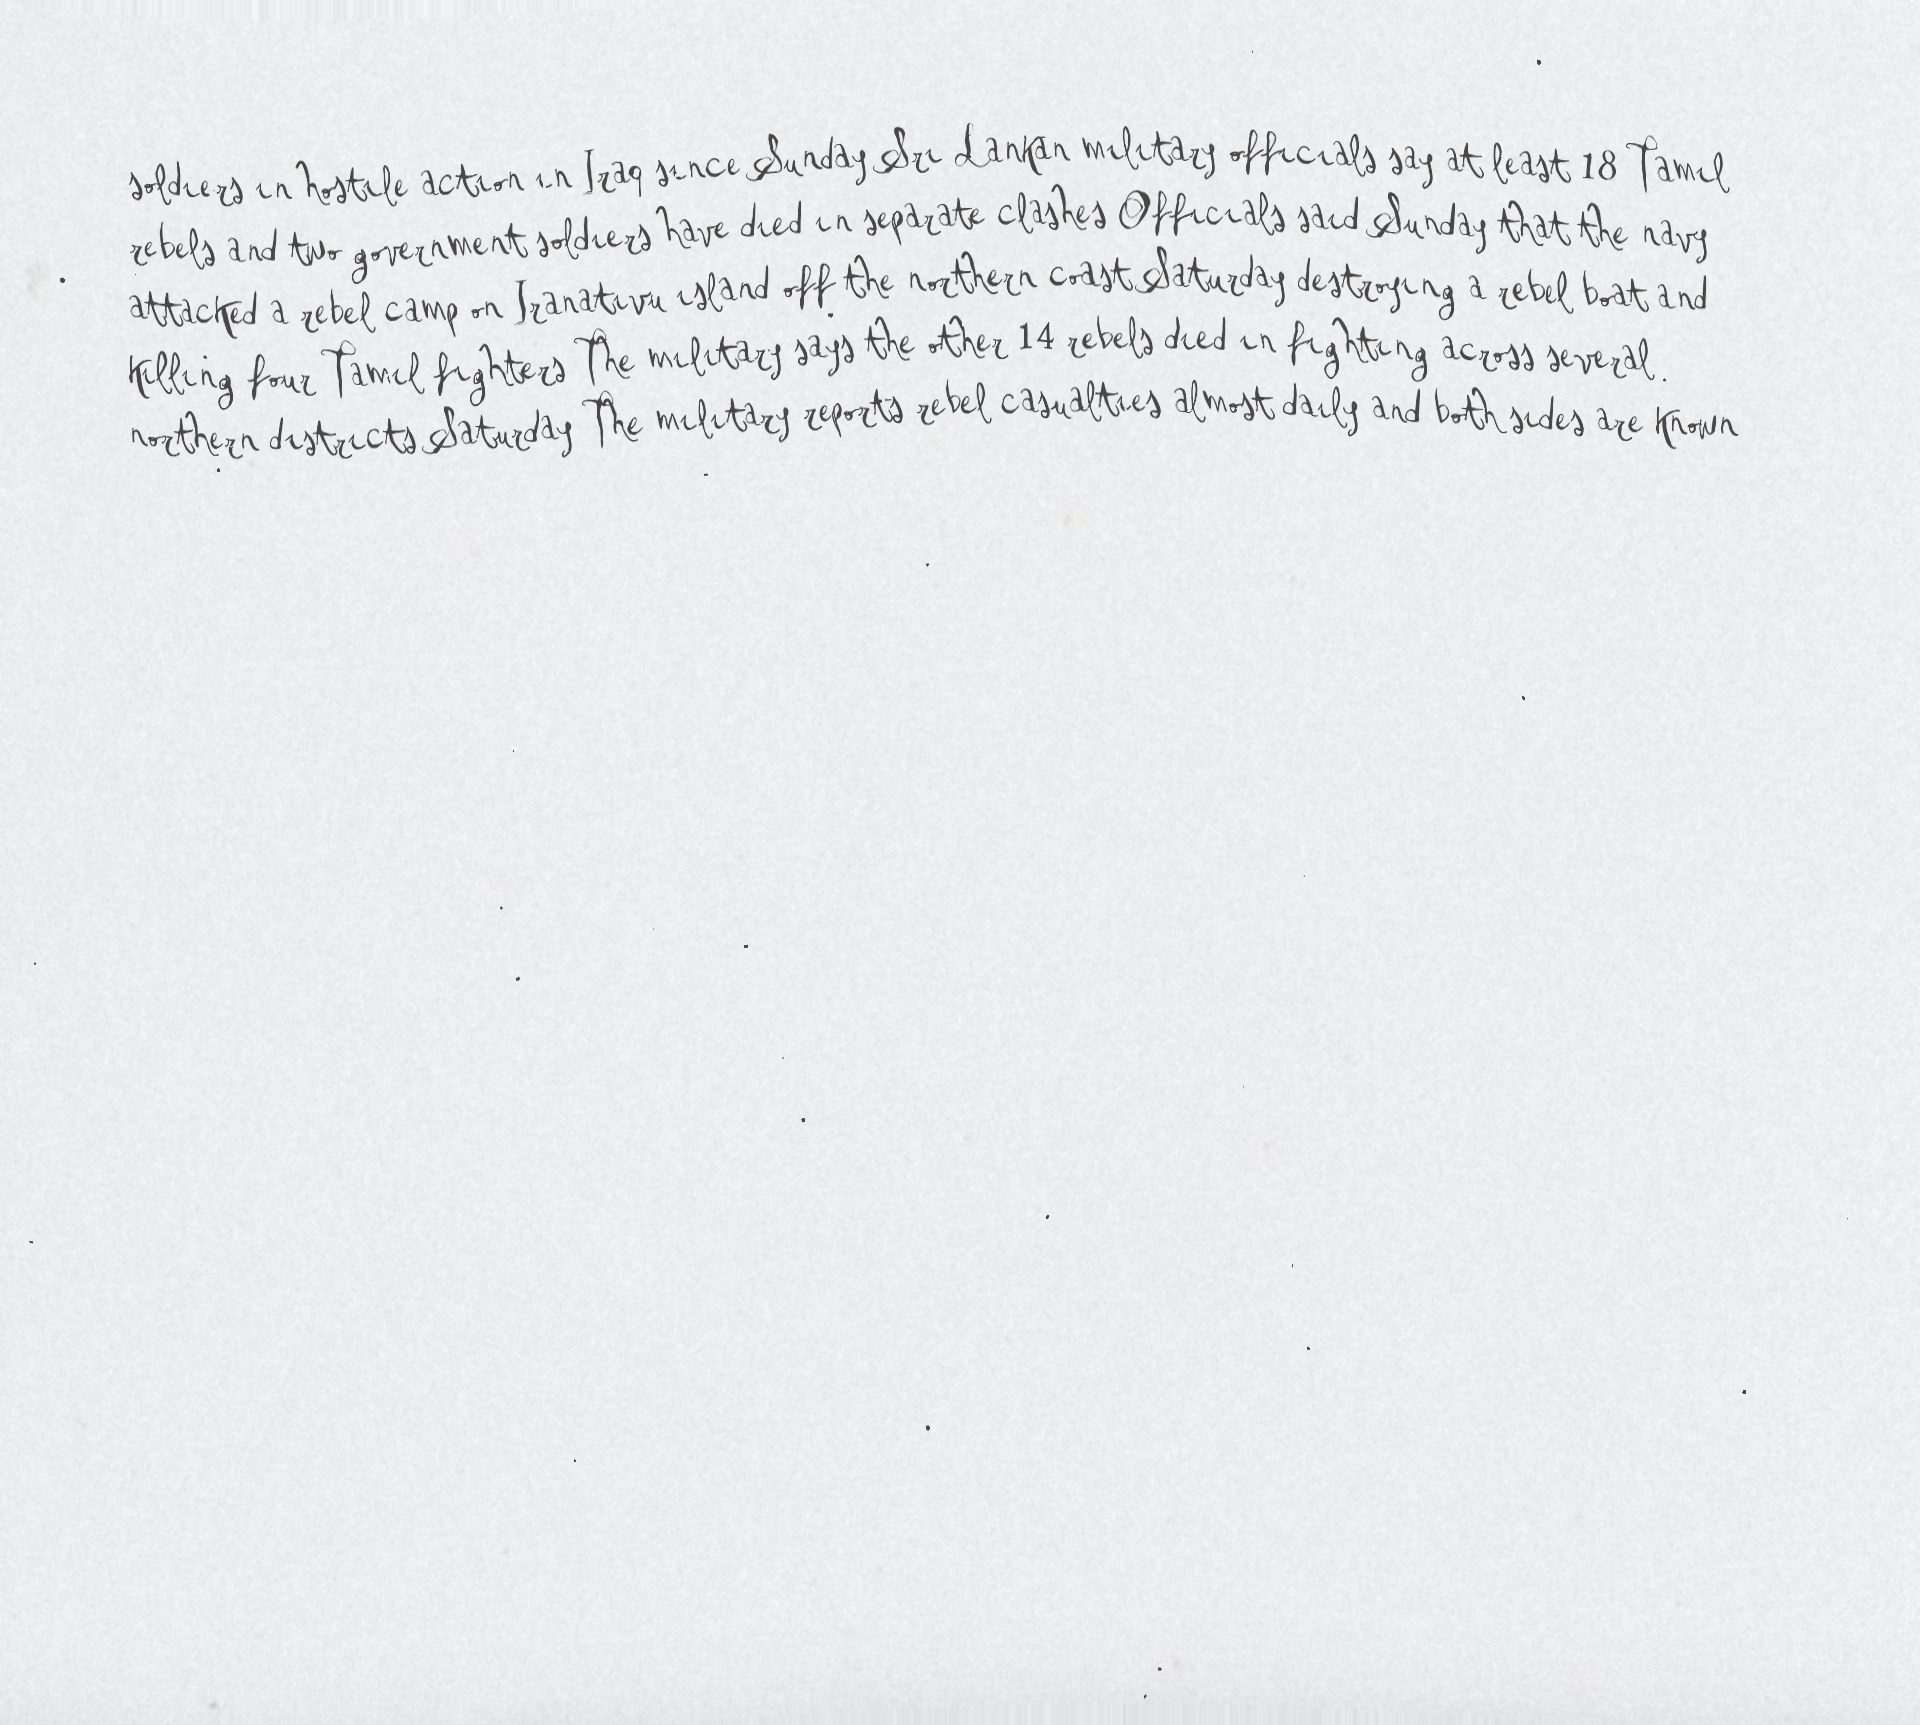 soldiers in hostile action in Iraq since Sunday Sri Lankan military officials say at least 18 Tamil
rebels and two government soldiers have died in separate clashes Officials said Sunday that the navy
attacked a rebel camp on Iranativu island off the northern coast Saturday destroying a rebel boat and
killing four Tamil fighters The military says the other 14 rebels died in fighting across several
northern districts Saturday The military reports rebel casualties almost daily and both sides are known